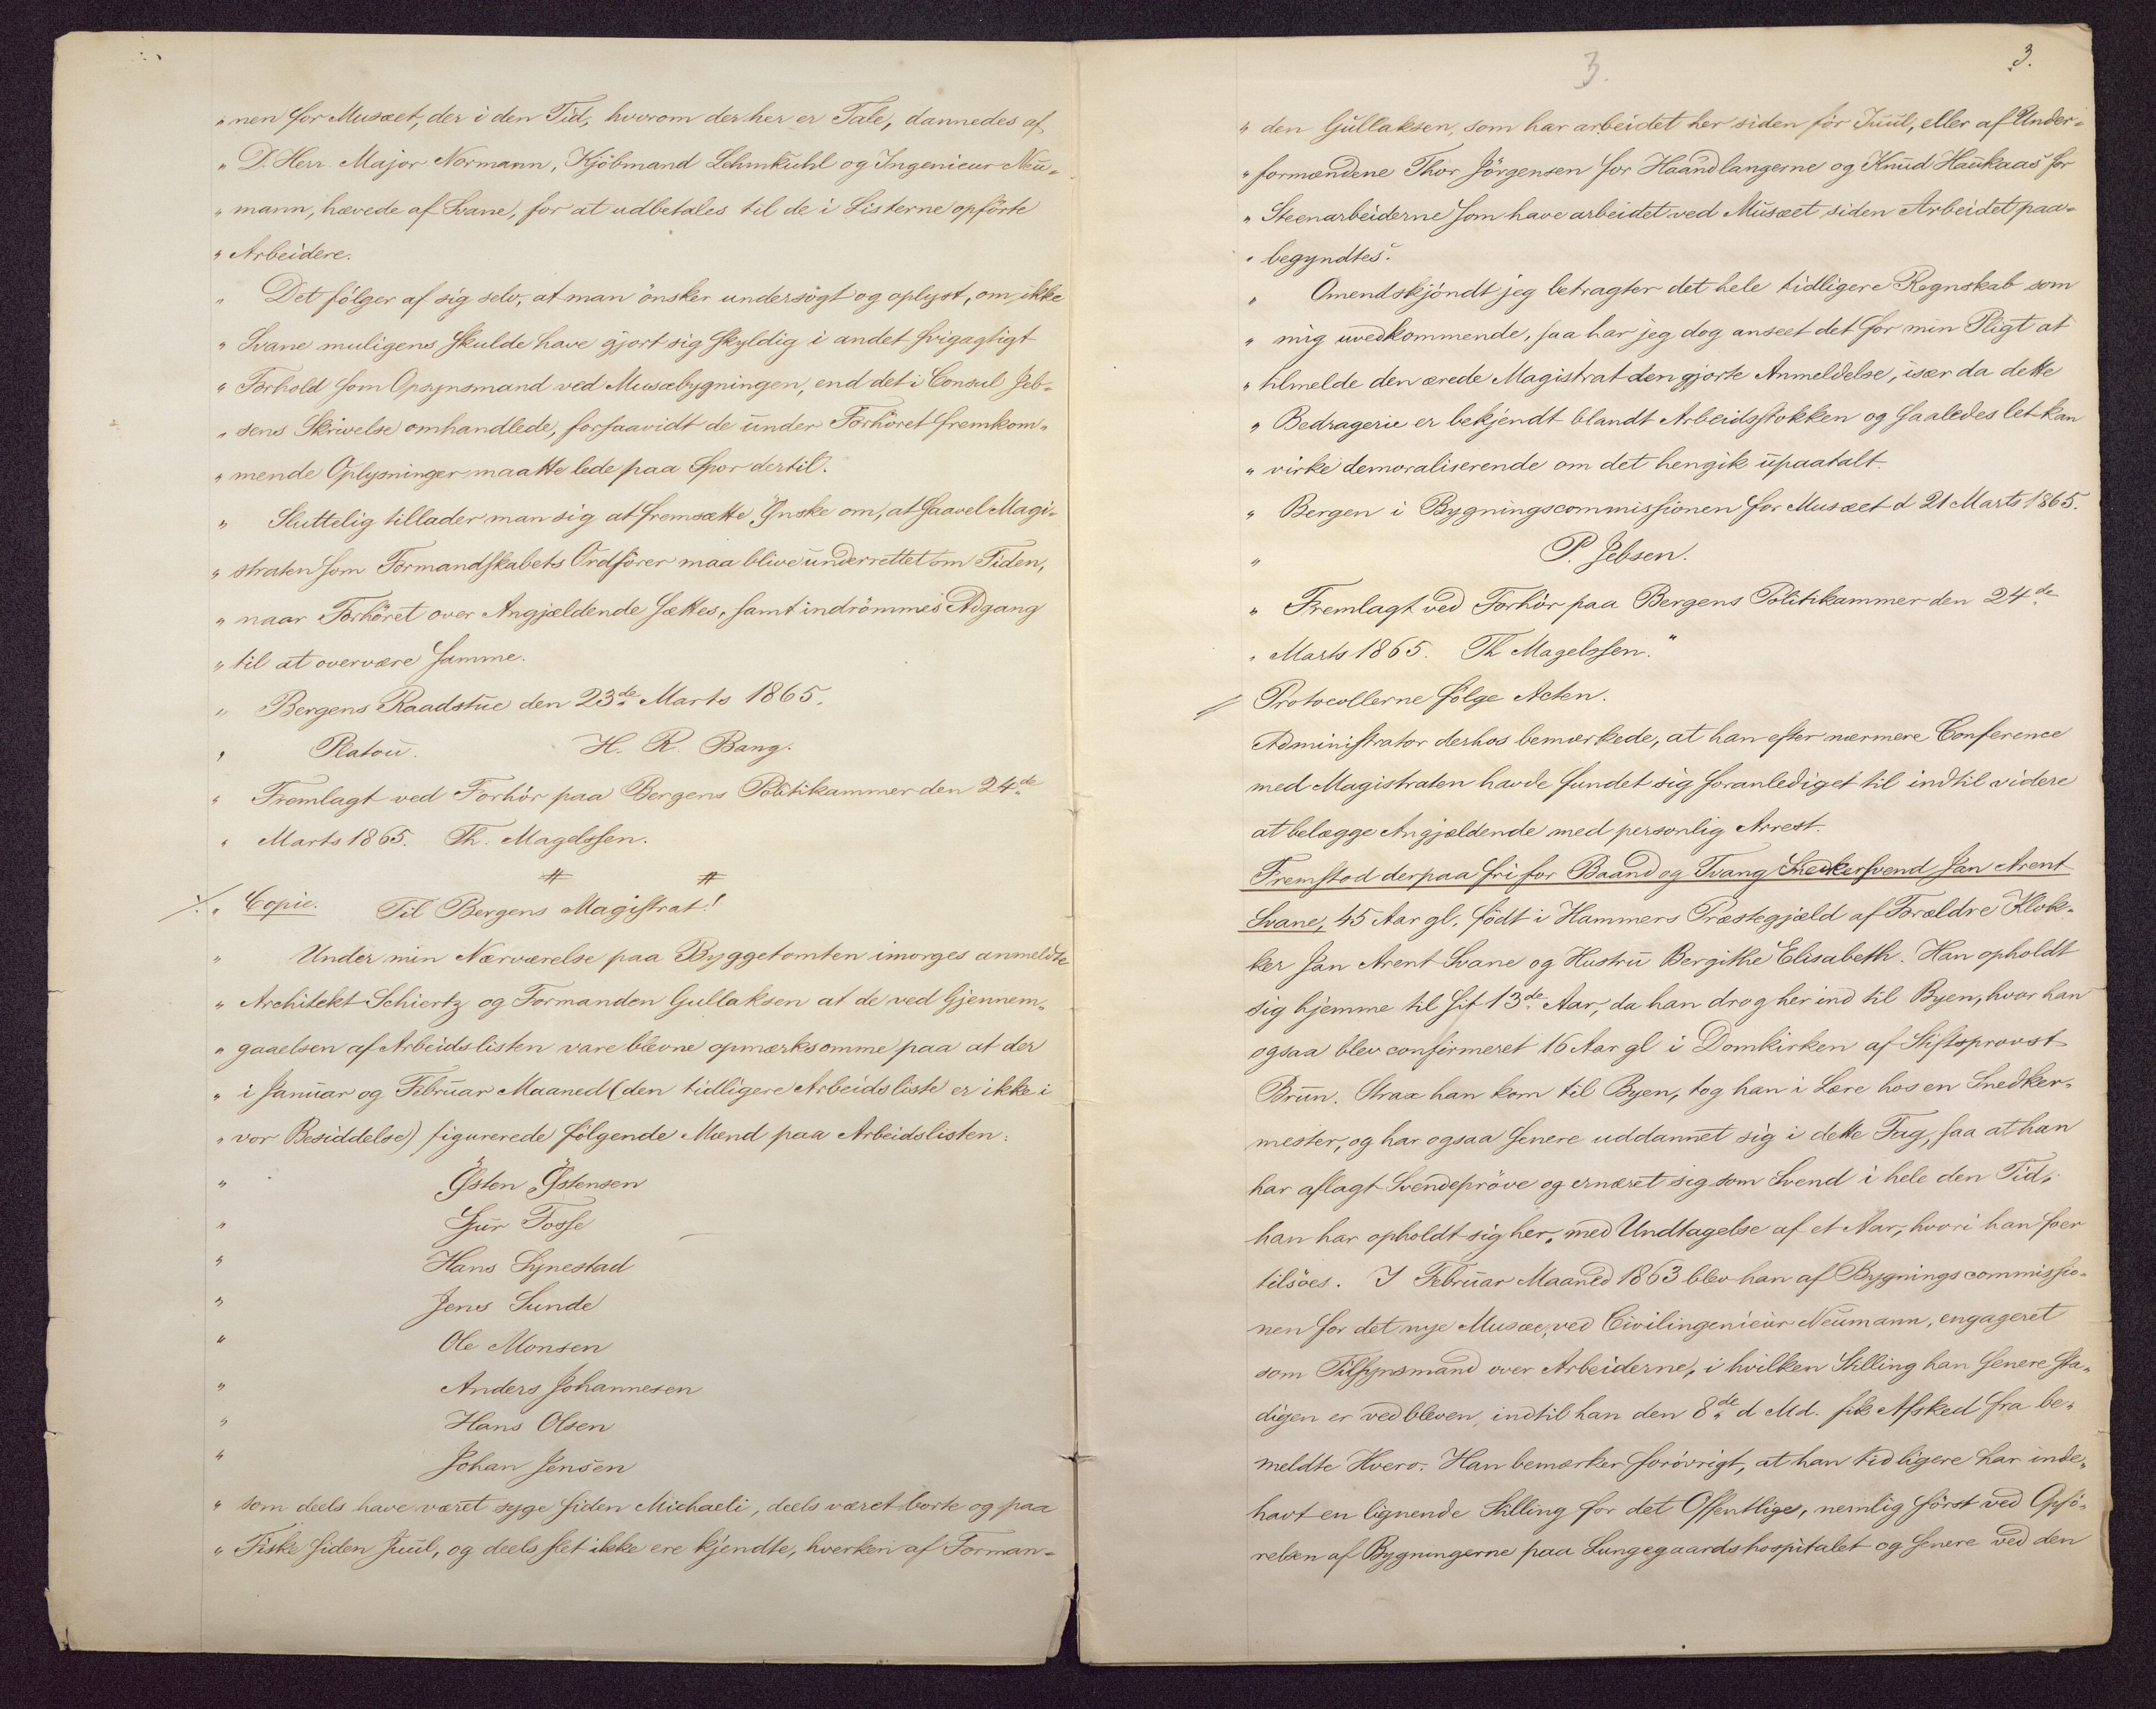 „ nen for Musæet, der i den Tid, hvorom der her er Tale, dannedes af
„ D. Herr. Major Normann, Kjöbmand Lehmkuhl og Ingenieur Neu-
„ mann, hævede af Svane, for at udbetales til de i Listerne opförte
„ Arbeidere.
„ Det fölger af sig selv, at man önsker undersögt og oplyst, om ikke
„ Svane muligens skulde have gjort sig skyldig i andet svigagtigt
„ Forhold som Opsynsmand ved Musæbygningen, end det i Consul Jeb-
„ sens Skrivelse omhandlede, forsaavidt de under Forhöret fremkom-
„ mende Oplysninger maatte lede paa Spor dertil.
„ Sluttelig tillader man sig at fremsætte Ønske om, at saavel Magi-
„ straten som Formandskabets Ordförer maa blive underrettet om Tiden,
„ naar Forhöret over Angjældende sættes, samt indrömmes Adgang
„ til at overvære samme.
„ Bergens Raadstue den 23de Marts 1865.
„ Platou. H. R. Bang.
„ Fremlagt ved Forhör paa Bergens Politikammer den 24de
„ Marts 1865. Th. Magelssen.
# #
„ Copie. Til Bergens Magistrat!
„ Under min Nærværelse paa Byggetomten imorges anmeldte
„ Architekt Schiertz og Formanden Gullaksen at de ved Gjennem-
„ gaaelsen af Arbeidslisten vare blevne opmærksomme paa at der
„ i Januar og Februar Maaned (den tidligere Arbeidsliste er ikke i
„ vor Besiddelse) figurerede fölgende Mænd paa Arbeidslisten:
„ Østen Østensen
„ Sjur Fosse
„ Hans Lynestad
„ Jens Sunde
„ Ole Monsen
„ Anders Johannesen
„ Hans Olsen
„ Johan Jensen
„ som deels have været syge siden Michaeli, deels været borte og paa
„ Fiske siden Juul, og deels slet ikke ere kjendte, hverken af Forman-
3. 3.
„ den Gullaksen, som har arbeidet her siden för Juul, eller af Under-
„ formændene Thor Jörgensen for Haandlangerne og Knud Haukaas for
„ Steenarbeiderne som have arbeidet ved Musæet siden Arbeidet paa-
„ begyndtes.
„ Omendskjöndt jeg betragter det hele tidligere Regnskab som
„ mig uvedkommende, saa har jeg dog anseet det for min Pligt at
„ tilmelde den ærede Magistrat den gjorte Anmeldelse, især da dette
„ Bedragerie er bekjendt blandt Arbeidsstokken og saaledes let kan
„ virke demoraliserende om det hengik upaatalt.
„ Bergen i Bygningscommissionen for Musæet d 21 Marts 1865.
„ P. Jebsen.
„ Fremlagt ved Forhör paa Bergens Politikammer den 24de
„ Marts 1865. Th Magelssen.“
Protocollerne fölge Acten.
Administrator derhos bemærkede, at han efter nærmere Conference
med Magistraten havde fundet sig foranlediget til indtil videre
at belægge Angjældende med personlig Arrest.
Fremstod derpaa fri for Baand og Tvang Snedkersvend Jan Arent
Svane, 45 Aar gl. födt i Hammers Præstegjæld af Forældre Klok-
ker Jan Arent Svane og Hustru Bergithe Elisabeth. Han opholdt
sig hjemme til sit 13de Aar, da han drog her ind til Byen, hvor han
ogsaa blev confirmeret 16 Aar gl i Domkirken af Stiftsprovst
Brun. Strax han kom til Byen, tog han i Lære hos en Snedker-
mester, og har ogsaa senere uddannet sig i dette Fag, saa at han
har aflagt Svendepröve og ernæret sig som Svend i hele den Tid,
han har opholdt sig her, med Undtagelse af et Aar, hvori han foer
tilsöes. I Februar Maaned 1863 blev han af Bygningscommissio-
nen for det nye Musæe, ved Civilingenieur Neumann, engageret
som Tilsynsmand over Arbeiderne, i hvilken Stilling han senere sta-
digen er vedbleven, indtil han den 8de d Md. fik Afsked fra be-
meldte Hverv. Han bemærker forövrigt, at han tidligere har inde-
havt en lignende Stilling for det Offentlige, nemlig först ved Opfö-
relsen af Bygningerne paa Lungegaardshospitalet og senere ved den